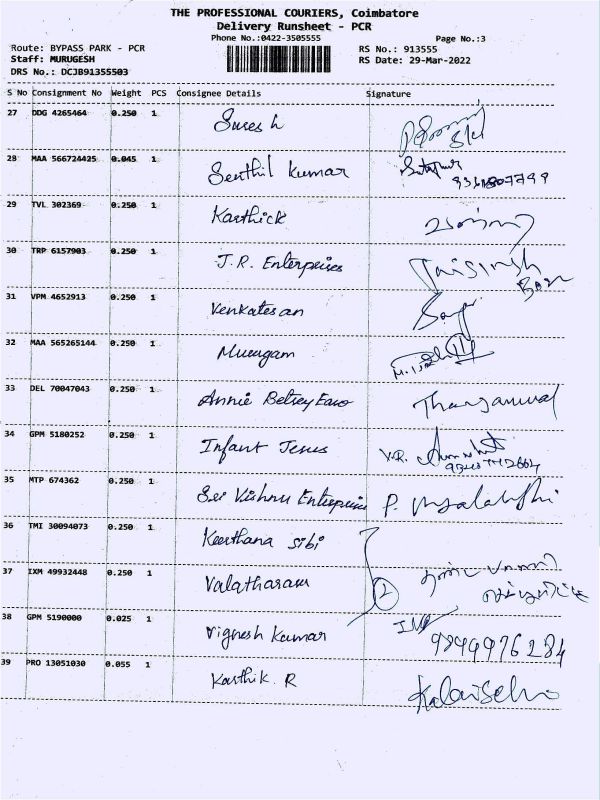 THE PROFESSIONAL COURIERS, Coimbatore
Delivery Runsheet - PCR
Phone No.:0422-3505555
Page No.:3
Route: BYPASS PARK - PCR
RS No.: 913555
Staff: MURUGESH
RS Date: 29-Mar-2022
DRS No.: DCJB91355503
S No Consignment No Weight PCS Consignee Details Signature
27 DDG 4265464 0.250 1 Suresh
28 MAA 566724425 0.045 1 Senthil Kumar
29 TVL 302369 0.250 1 Karthick
30 TRP 6157903 0.250 1 J.R. Enterprises Jaisingh
31 VPM 4652913 0.250 1 Venkatesan
32 MAA 565265144 0.250 1 Murugam
33 DEL 70047043 0.250 1 Annie Betsey
34 GPM 5180252 0.250 1 Infant Jesus V.R.
35 MTP 674362 0.250 1 Sri Vishnu Enterprise P.
36 TMI 30094073 0.250 1 Keerthana Sibi
37 IXM 49932448 0.250 1 Valatharasu 2
38 GPM 5190000 0.025 1 Vignesh Kumar
39 PRO 13051030 0.055 1 Karthik. R Kalaiselvi